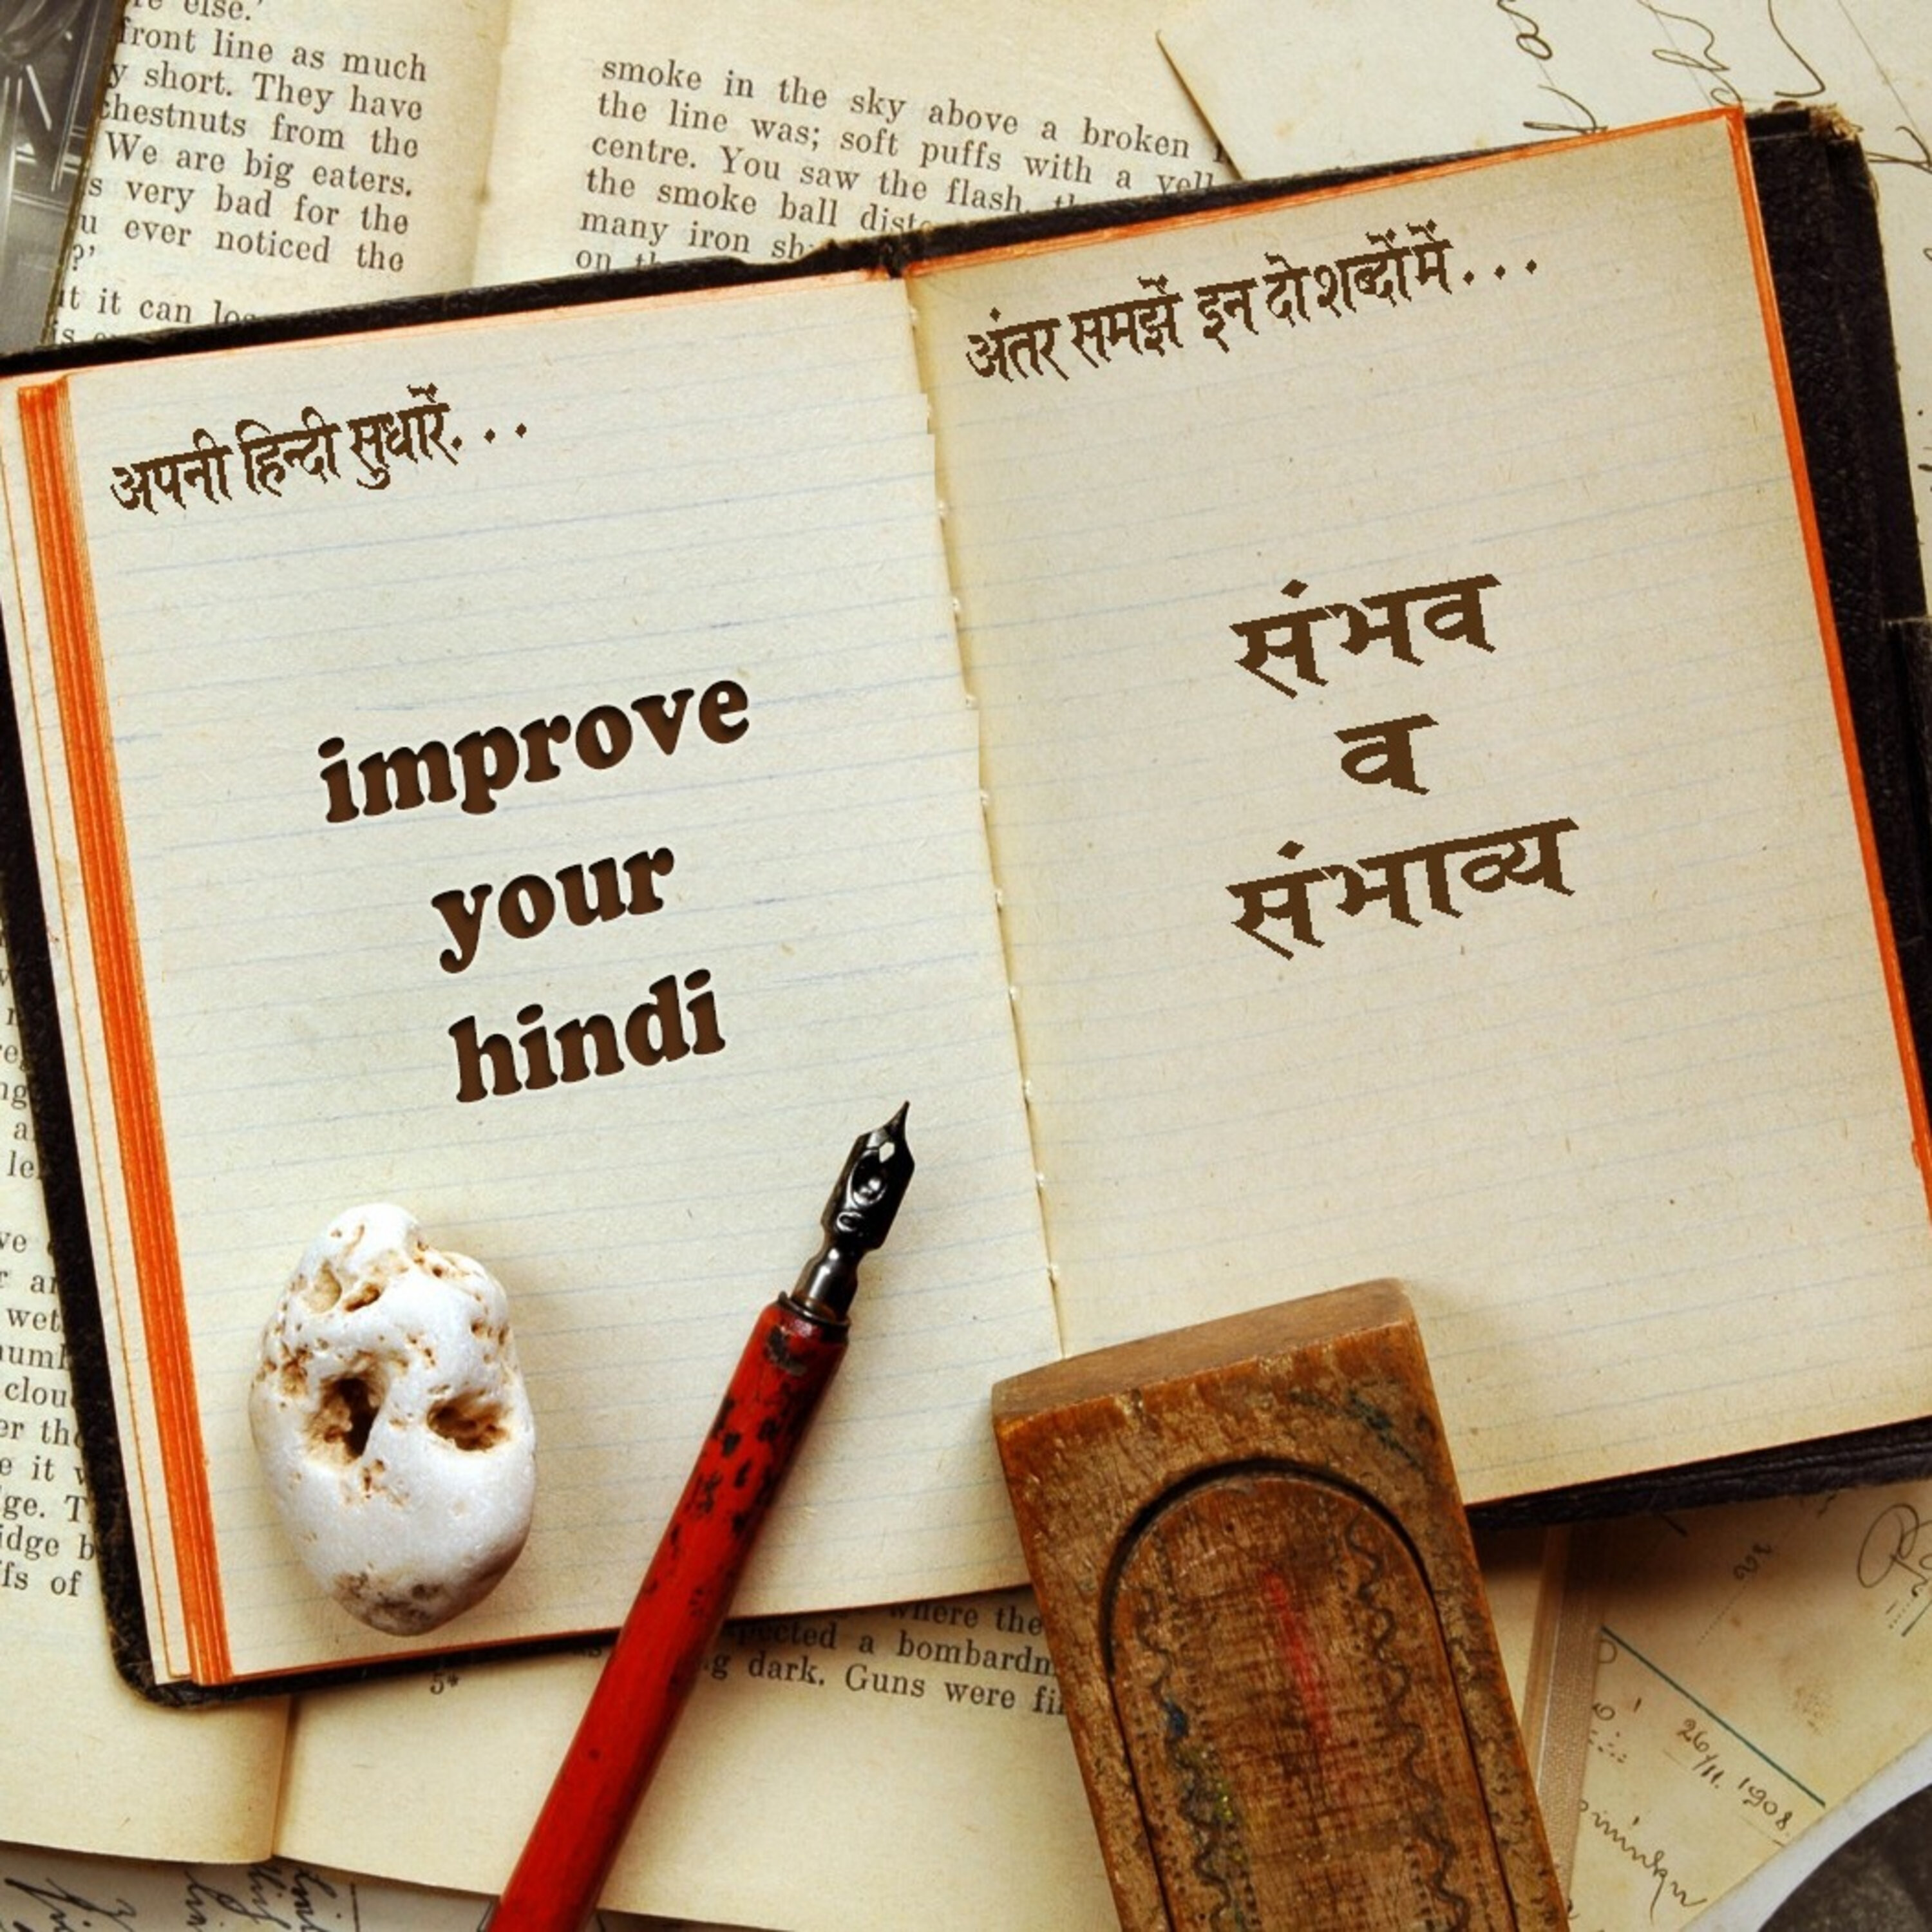 अपनी हिन्दी सुधारें...
improve
your
hindi
अंतर समझें इन दो शब्दों में...
संभव
व
संभाव्य
else.'
front line as much
short. They have
chestnuts from the
We are big eaters.
very bad for the
ever noticed the
?'
it can
smoke in the sky above a broken
the line was; soft puffs with a
centre. You saw the flash,
the smoke ball
many iron
on
where the
a bombardm
dark. Guns were
5*
wet
clou
it
ge. T
idge b
fs of
26/11. 1908.